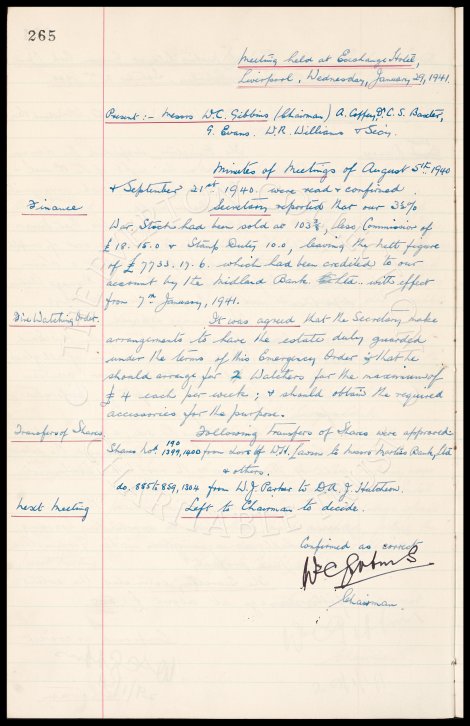 265
Meeting held at Exchange Hotel,
Liverpool, Wednesday, January 29, 1941.
Present :- Messrs W.C. Gibbins (Chairman) A. Coffey, Dr C.S. Baxter,
G. Evans. W.R. Williams & Secy.
Minutes of Meetings of August 5th 1940
& September 21st 1940 were read & confirmed.
Finance
Secretary reported that our 3½%
War Stock had been sold at 103⅜, less Commission of
£18.15.0 & Stamp Duty 10.0, leaving the nett figure
of £7733.17.6. which had been credited to our
account by the Midland Bank with effect
from 7th January, 1941.
Fire Watching Order.
It was agreed that the Secretary make
arrangements to have the estate duly guarded
under the terms of this Emergency Order & that he
should arrange for 2 Watchers for the maximum of
£4 each per week; & should obtain the required
accessories for the purpose.
Transfers of Shares
Following Transfers of Shares were approved:
190
Shares Nos 1399,1400 from Exors of W.H. Lawson to Messrs Martins Bank, Ltd
& others.
do. 855 to 859, 1304 from W.J. Parker to D.A.J. Hutchern.
Next Meeting
Left to Chairman to decide.
Confirmed as correct
WC Gibbins
Chairman.